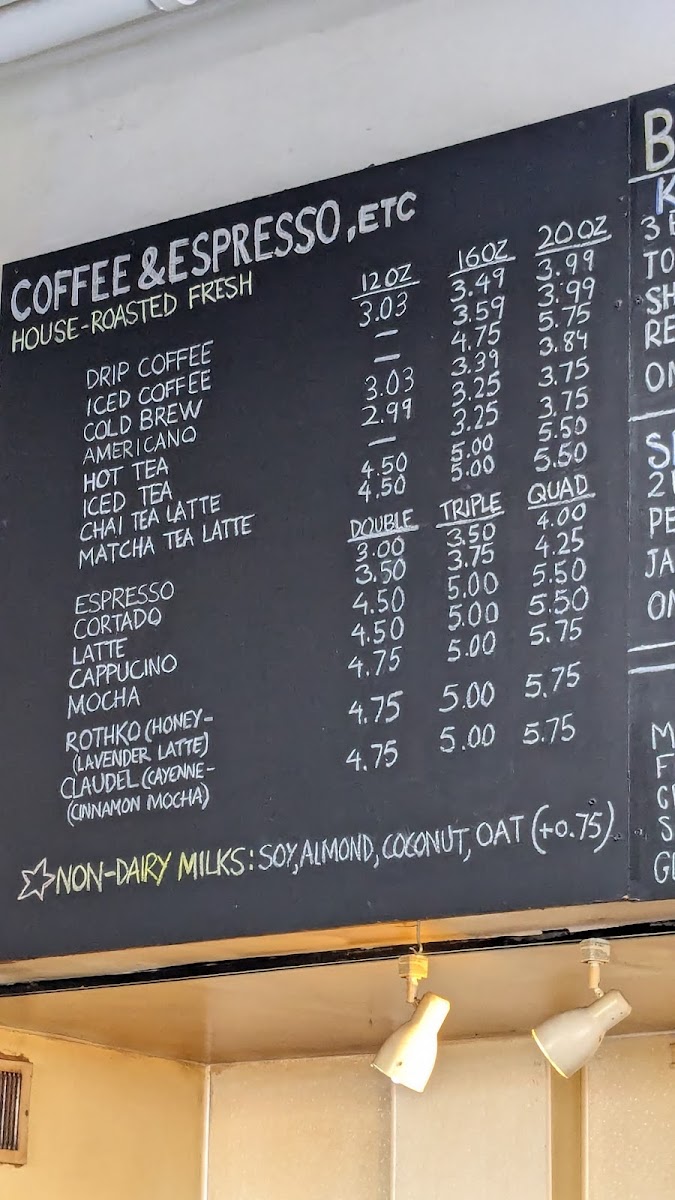 COFFEE & ESPRESSO, ETC
HOUSE-ROASTED FRESH
12OZ 16OZ 20OZ
DRIP COFFEE 3.03 3.49 3.99
ICED COFFEE — 3.59 3.99
COLD BREW — 4.75 5.75
AMERICANO 3.03 3.39 3.84
HOT TEA 2.99 3.25 3.75
ICED TEA — 3.25 3.75
CHAI TEA LATTE 4.50 5.00 5.50
MATCHA TEA LATTE 4.50 5.00 5.50
DOUBLE TRIPLE QUAD
ESPRESSO 3.00 3.50 4.00
CORTADO 3.50 3.75 4.25
LATTE 4.50 5.00 5.50
CAPPUCINO 4.50 5.00 5.50
MOCHA 4.75 5.00 5.75
ROTHKO (HONEY- 4.75 5.00 5.75
(LAVENDER LATTE)
CLAUDEL (CAYENNE- 4.75 5.00 5.75
(CINNAMON MOCHA)
☆NON-DAIRY MILKS: SOY, ALMOND, COCONUT, OAT (+0.75)